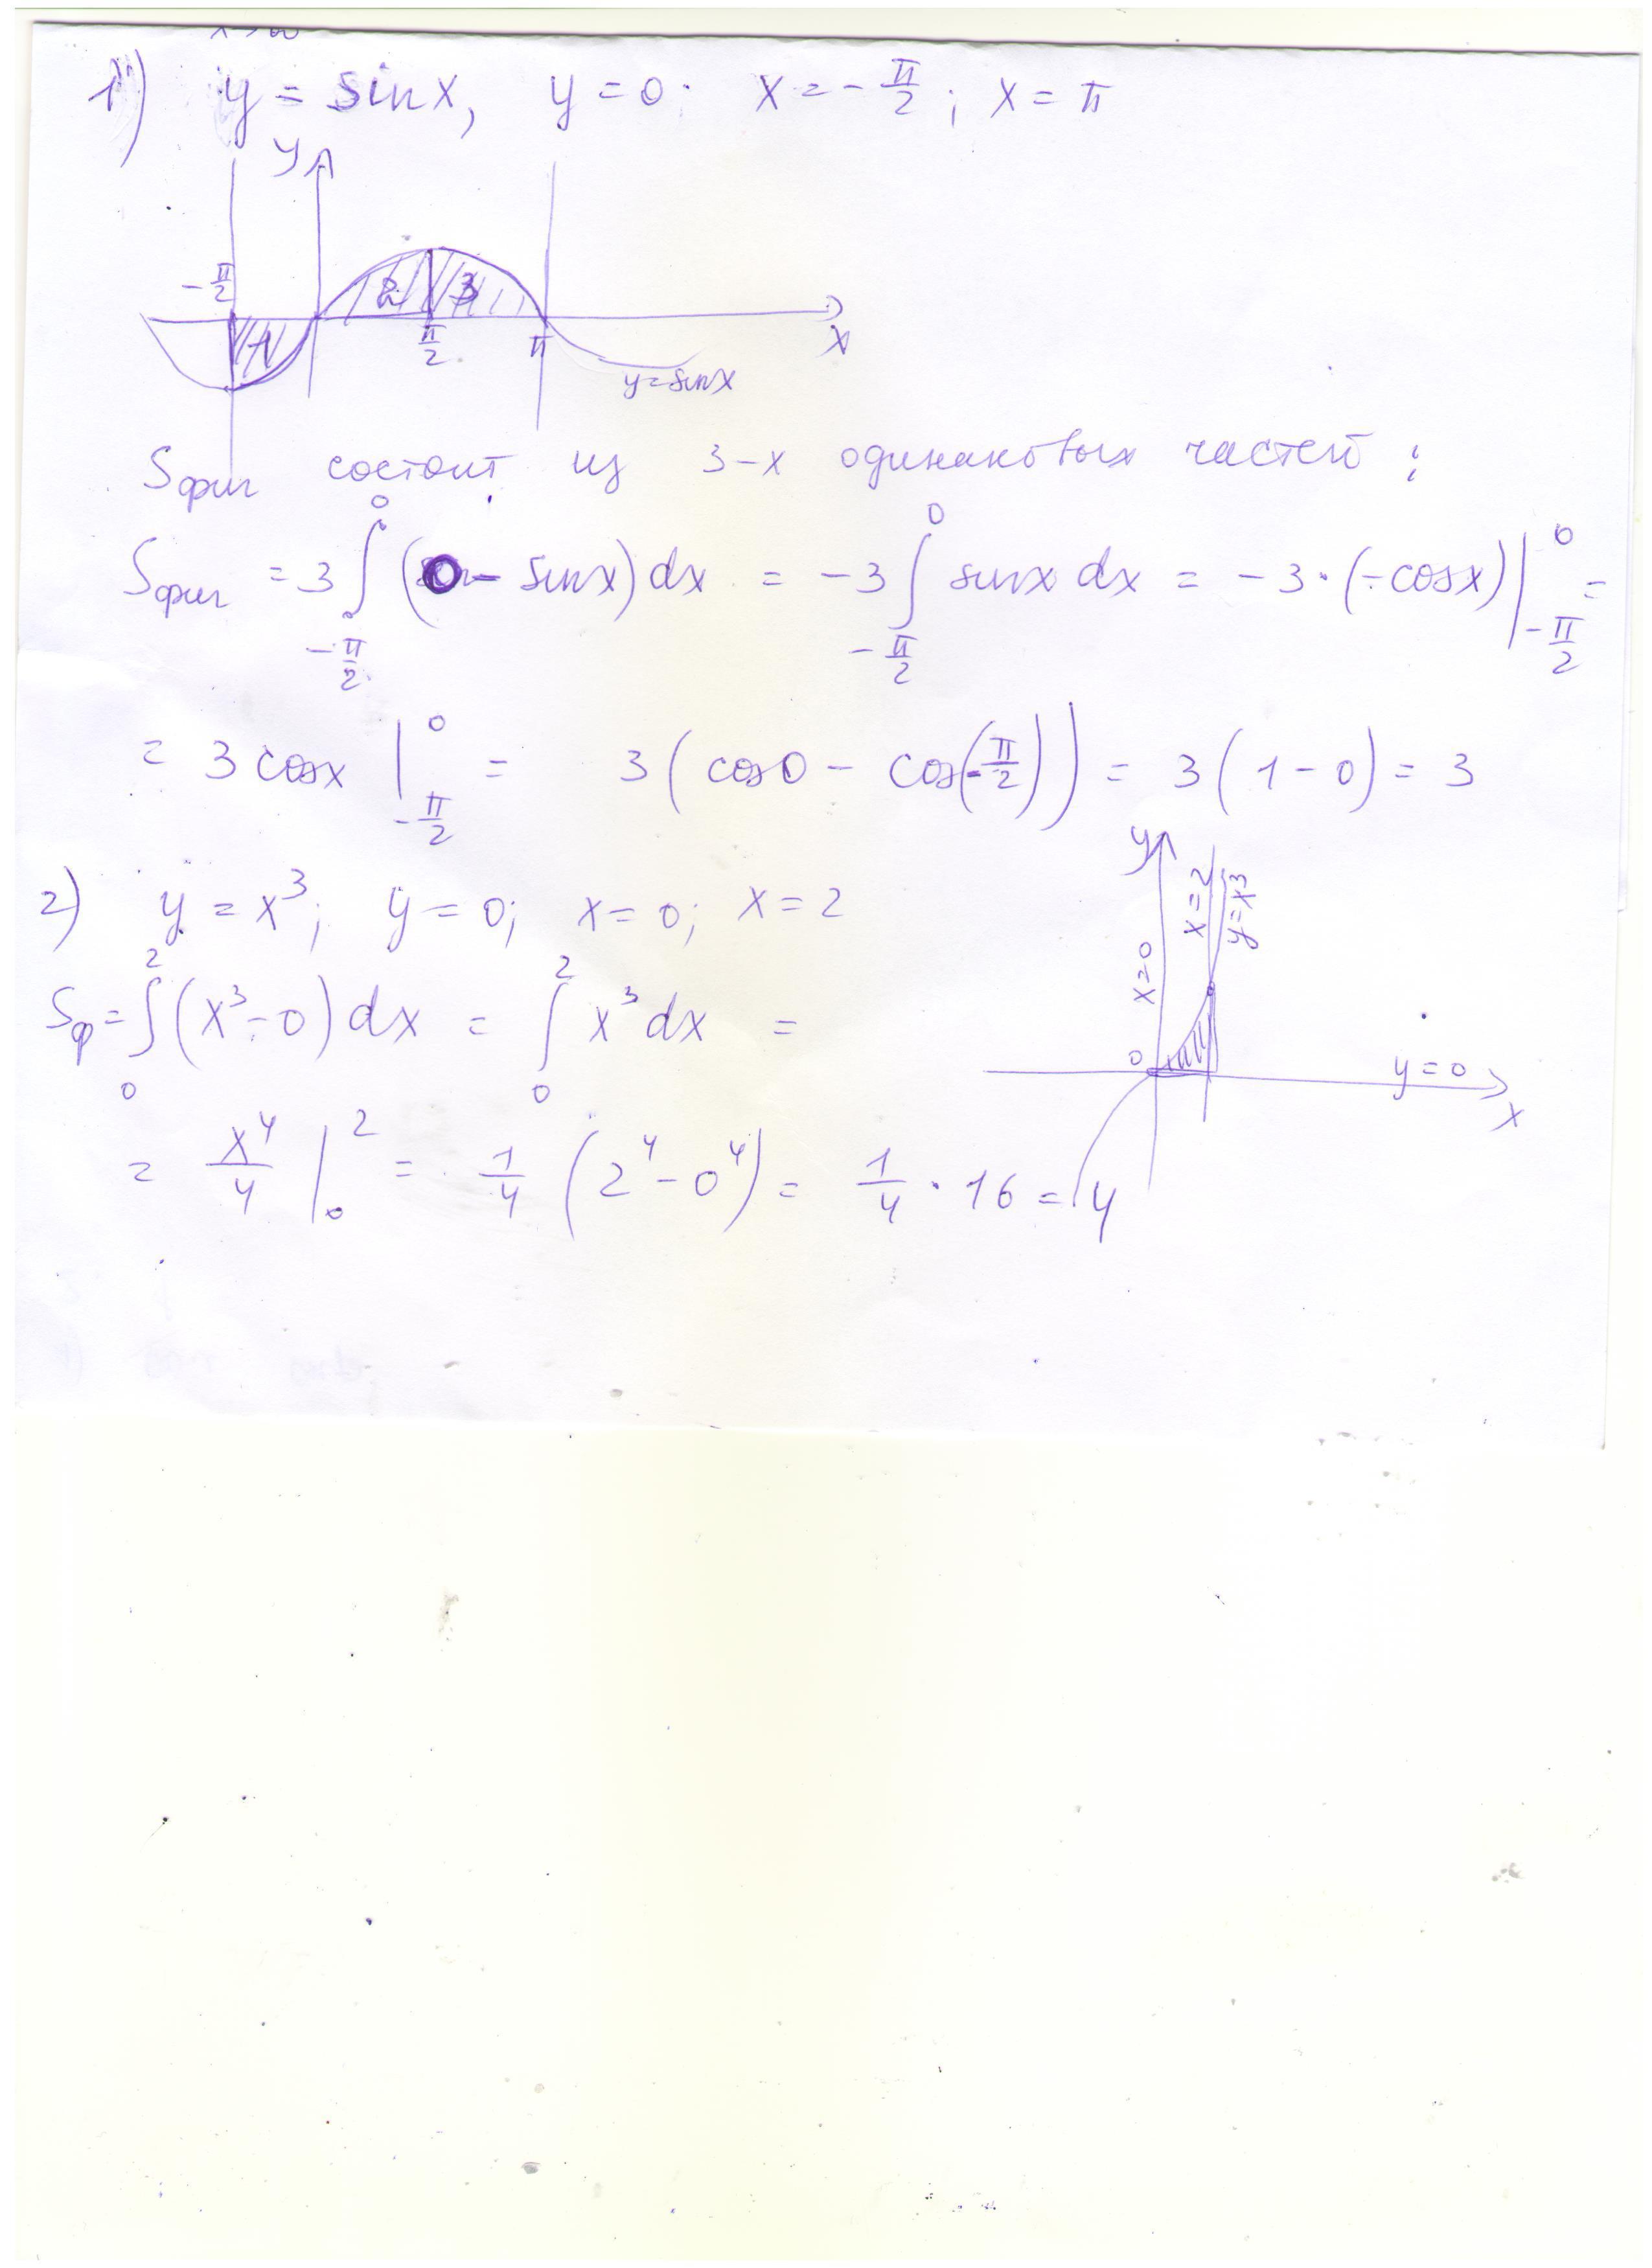 x→∞
1) y = sinx, y = 0; x = -π/2; x = π
y
-π/2
1 2 3
π/2 π x
y=sinx
Sфиг состоит из 3-х одинаковых частей:
Sфиг = 3∫_{-π/2}^{0} (0 - sinx)dx = -3∫_{-π/2}^{0} sinx dx = -3·(-cosx)|_{-π/2}^{0} =
= 3cosx|_{-π/2}^{0} = 3(cos0 - cos(-π/2)) = 3(1-0) = 3
2) y = x³; y = 0; x = 0; x = 2
Sф = ∫_{0}^{2} (x³-0)dx = ∫_{0}^{2} x³dx =
= x⁴/4|_{0}^{2} = 1/4(2⁴-0⁴) = 1/4·16 = 4
y
x=0
x=2
y=x³
0
y=0
x